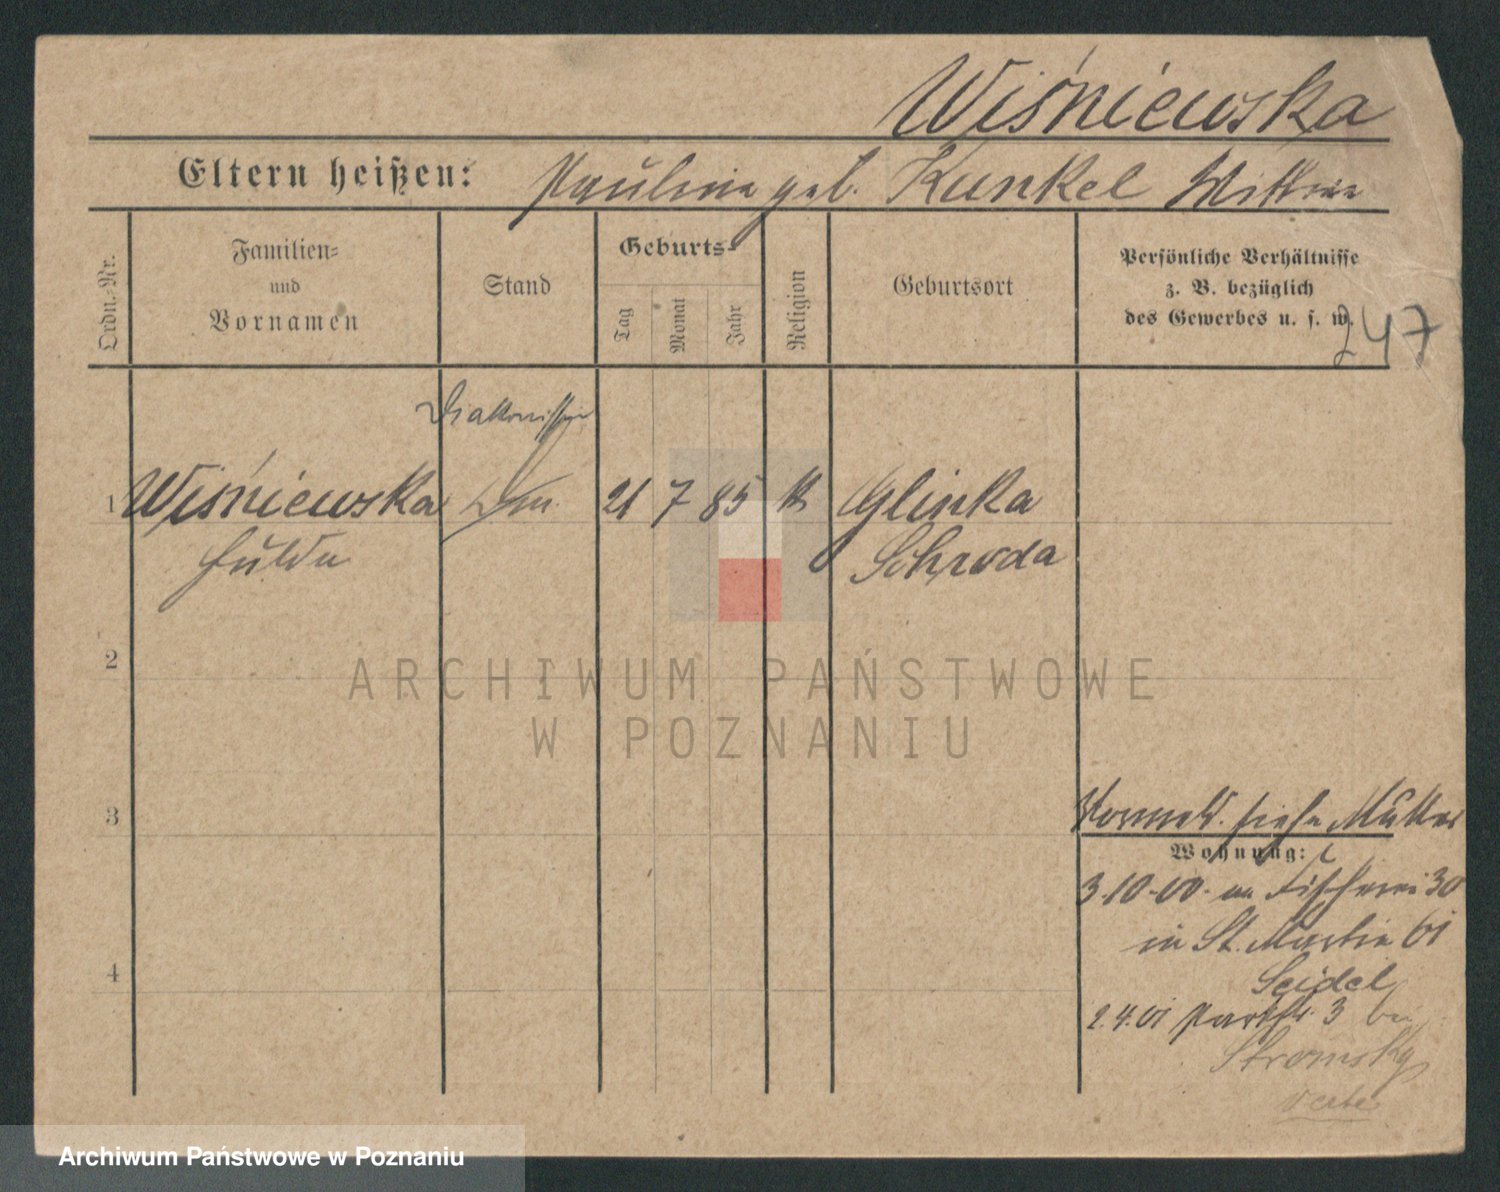 Wiśniewska
Eltern heißen: Pauline geb. Kunkel Wittwe
Ordn.-Nr.
Familien-
und
Vornamen
Stand
Geburts-
Tag
Monat
Jahr
Religion
Geburtsort
Persönliche Verhältnisse
z. B. bezüglich
des Gewerbes u. s. w.
247
Diakonissin
1 Wiśniewska 21 7 85 k Glinka
Hulda Schroda
2
ARCHIWUM PAŃSTWOWE
W POZNANIU
3
Vormeld. siehe Mutter
Wohnung:
3.10.00. Fischerei 30
in St. Martin 61
Seidel
4
2.4.01 Parkstr. 3 bei
Stromsky
Archiwum Państwowe w Poznaniu